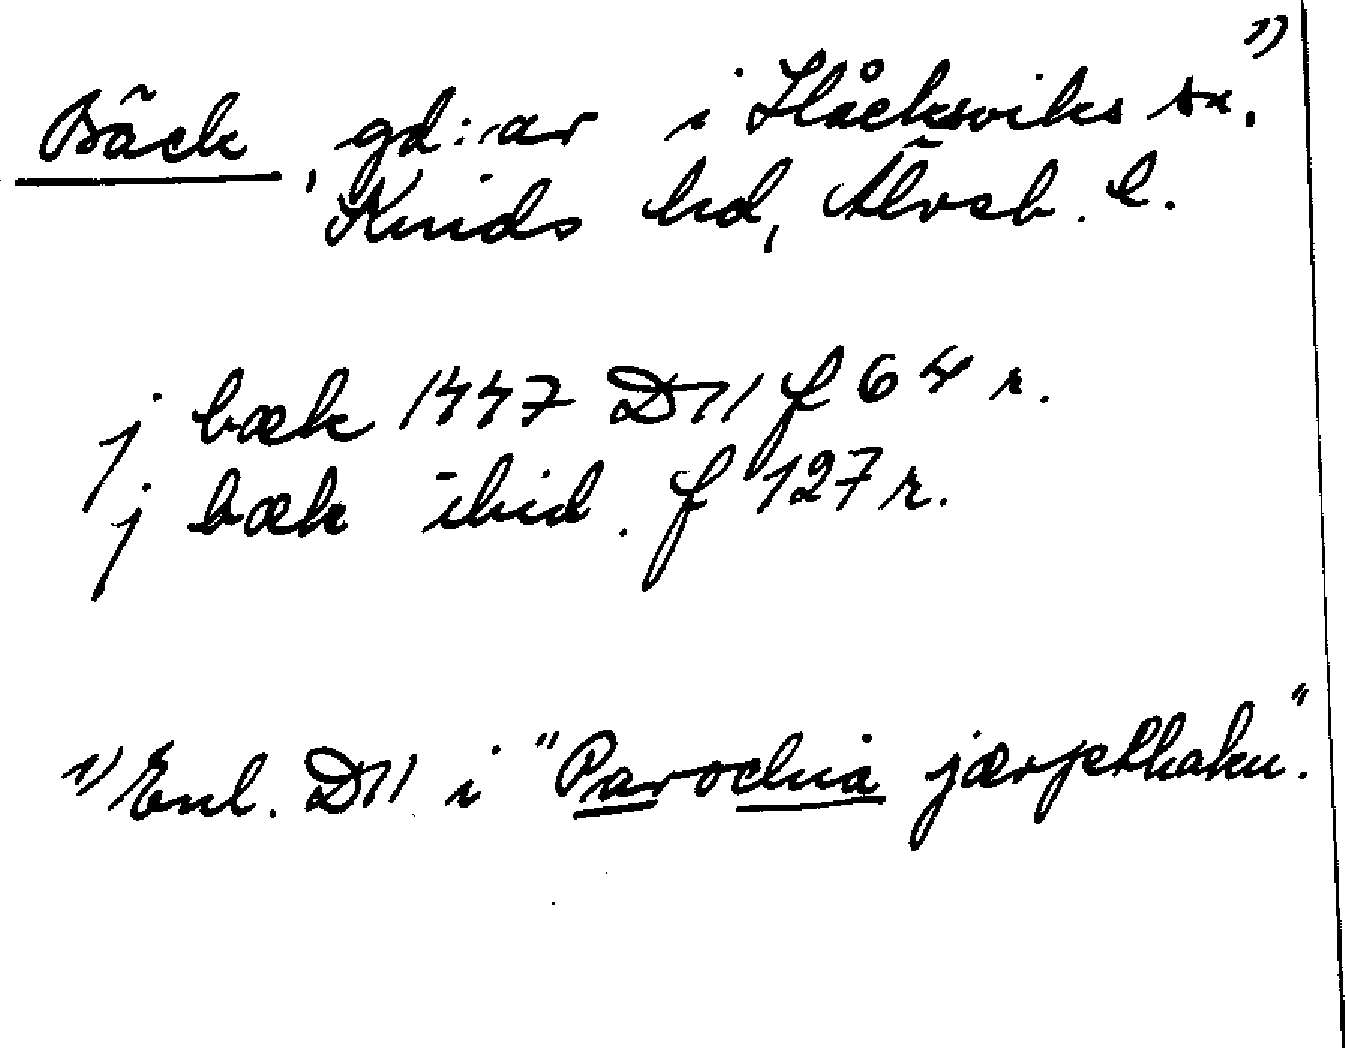 Bäck, gd:ar i Håcksviks sn. 1)
Kinds hd, Älvsb. l.
j bæk 1447 D11 f 64 r.
j bæk ibid. f 127 r.
1) Enl. D11 i "Parochia jærpethaku".